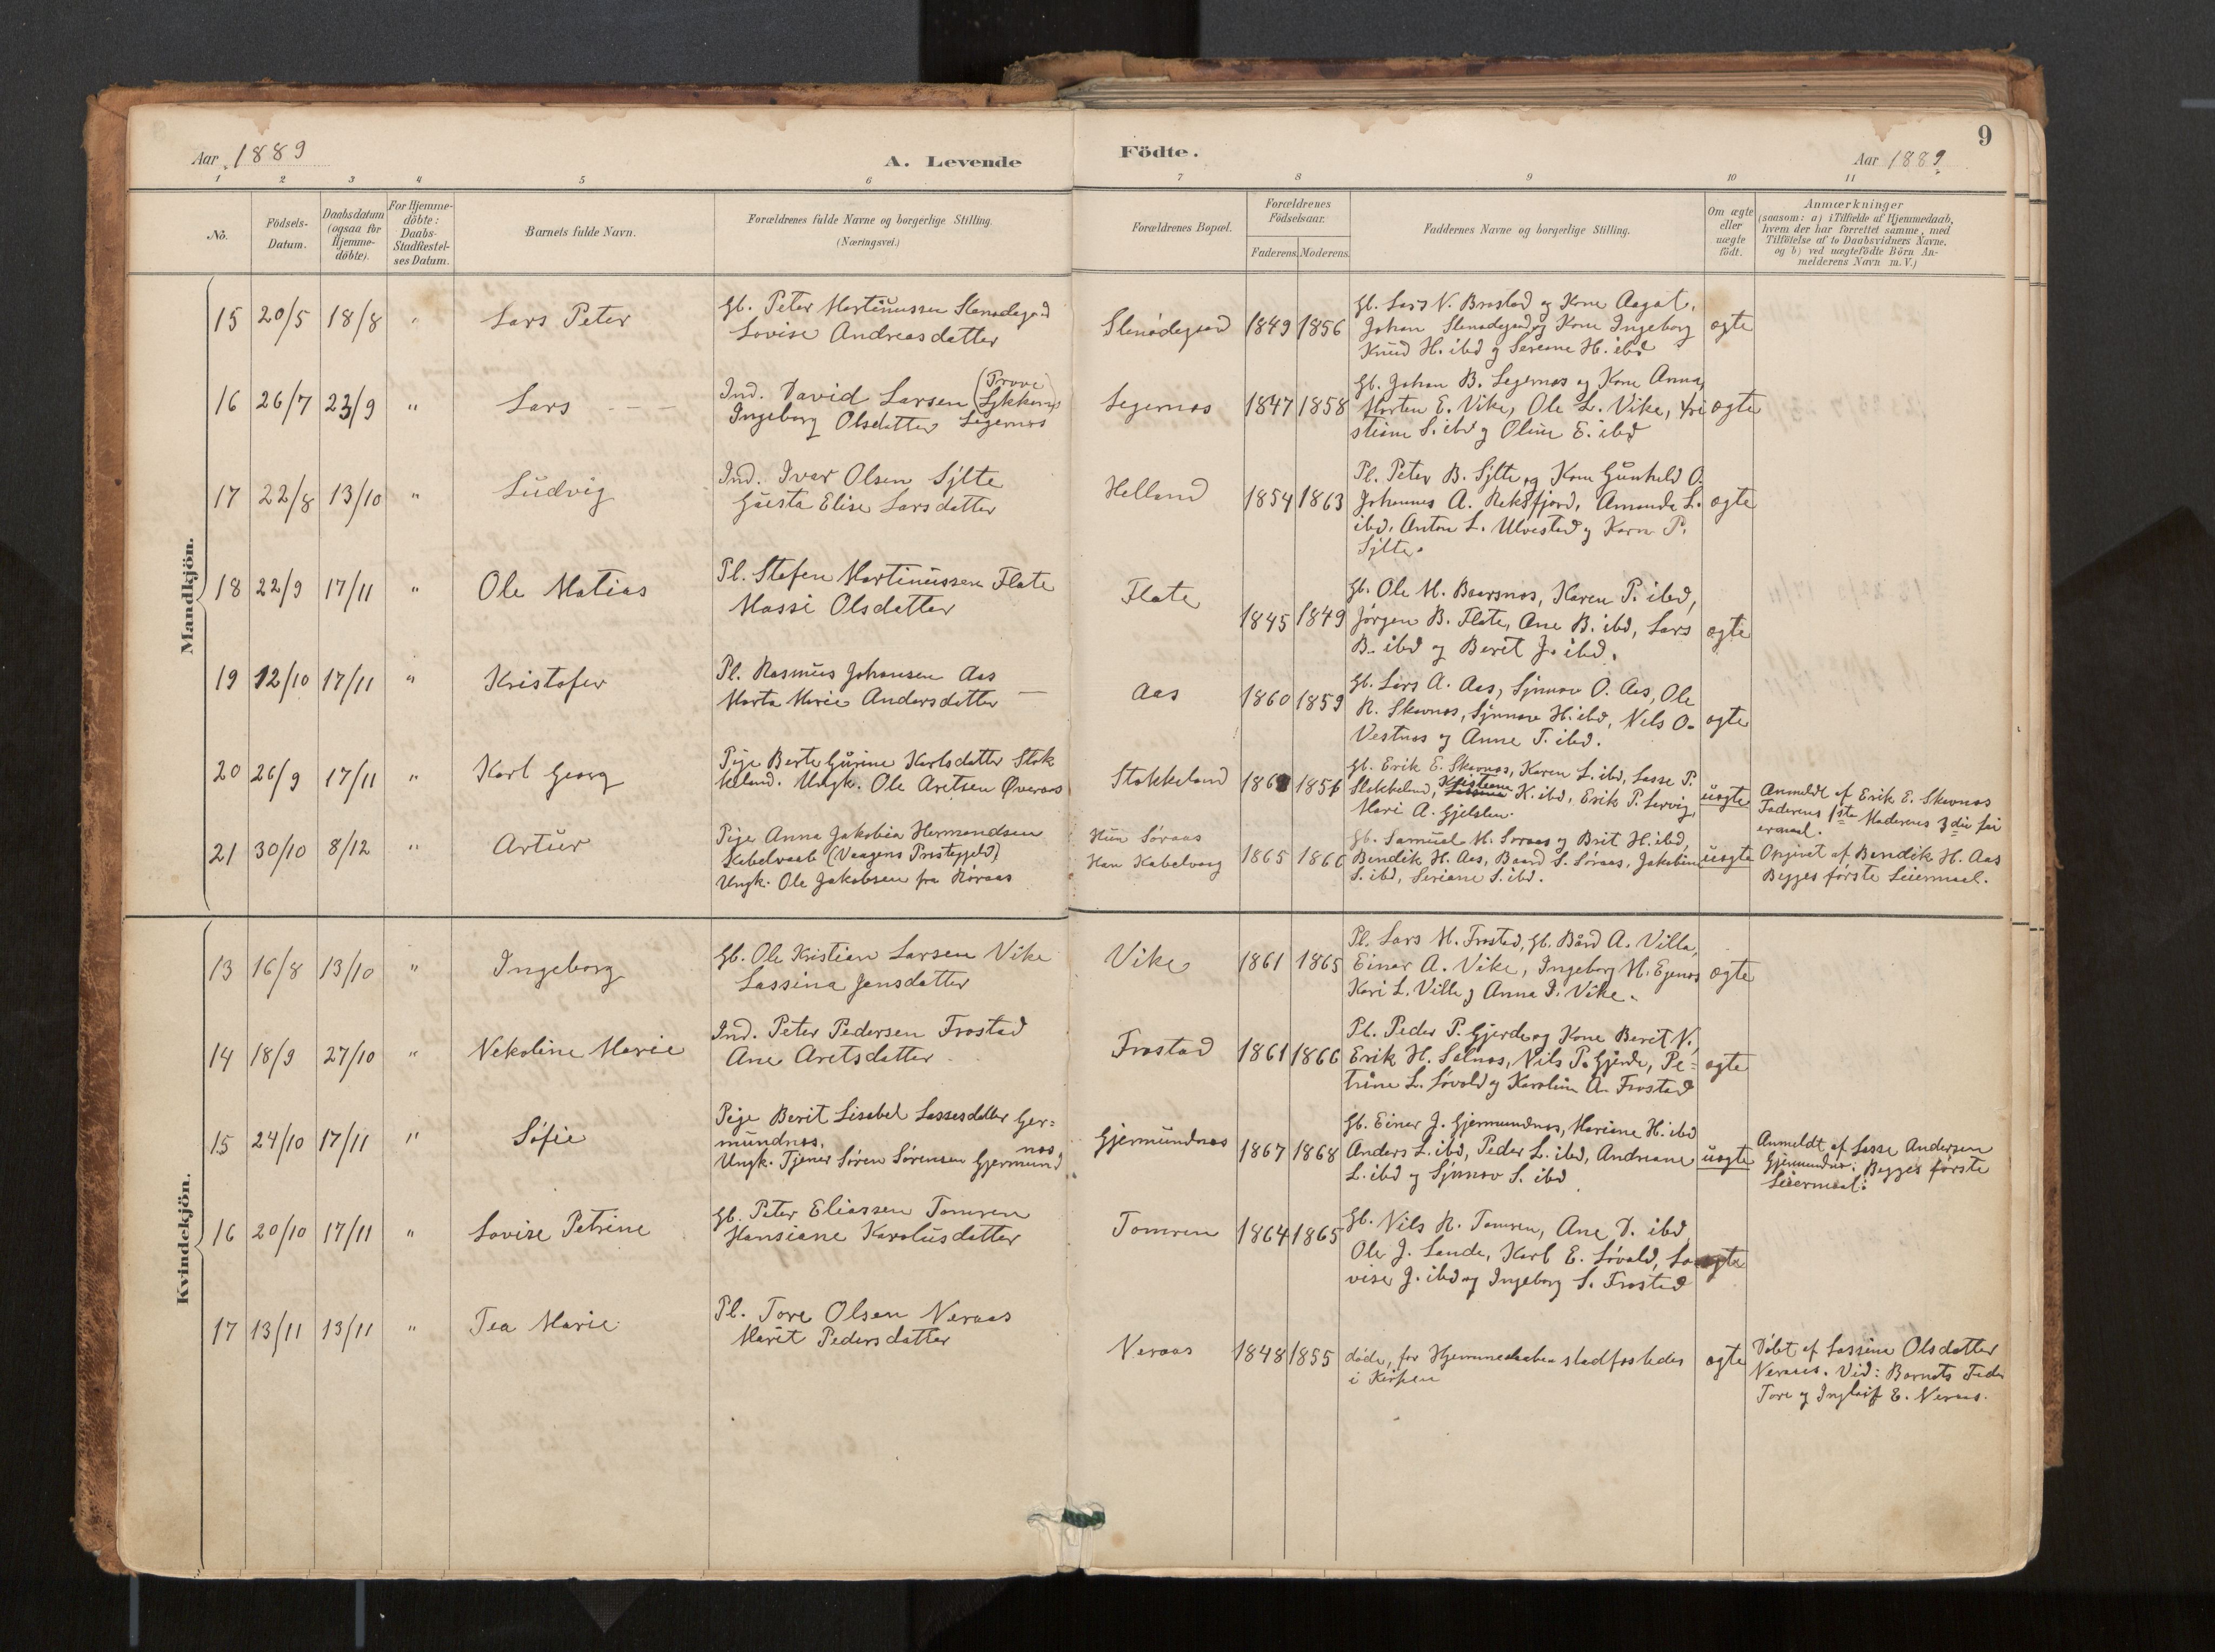 9
Aar 1889
A. Levende
Födte.
Aar 1889
1 2 3 4 5 6 7 8 9 10 11
No.
Födsels-
Datum.
Daabsdatum
(ogsaa for
Hjemme-
döbte).
For Hjemme-
döbte:
Daabs-
Stadfæstel-
ses Datum.
Barnets fulde Navn.
Forældrenes fulde Navne og borgerlige Stilling.
(Næringsvei.)
Forældrenes Bopæl.
Forældrenes
Födselsaar.
Faderens. Moderens.
Faddernes Navne og borgerlige Stilling.
Om ægte
eller
uægte
födt.
Anmærkninger
(saasom: a) i Tilfælde af Hjemmedaab,
hvem der har forrettet samme, med
Tilföielse af to Daabsvidners Navne,
og b) ved uægtefödte Börn An-
melderens Navn m. V.)
Mandkjön.
15 20/5 18/8 "
Lars Peter
Gb. Peter Martinussen
Lovise Andreasdatter
1849 1856
Gb. Lars N. Brastad og Kone Aagat,
Johan og Kone Ingeborg
Knud H. ibd og Seriane H. ibd
ægte
16 26/7 23/9 "
Lars
Ind. David Larsen
Ingeborg Olsdatter Legernæs
Legernæs
1847 1858
Gb. Johan B. Legernæs og Kone Anna,
Morten E. Vike, Ole L. Vike, Kri
stine S. ibd og Oline E. ibd
ægte
17 22/8 13/10 "
Ludvig
Ind. Ivar Olsen Sylte
Gusta Elise Larsdatter
Helland
1854 1863
Pl. Peter B. Sylte og Kone Gunhild O.
Johannes A. Rekfjord, Amanda L.
ibd, Anton L. Ulvestad og Karn P.
Sylte.
ægte
18 22/9 17/11 "
Ole Matias
Pl. Stefen Martinussen Flate
Massi Olsdatter
Flate
1845 1849
Gb. Ole M. Baarsnæs, Karen P. ibd,
Jørgen B. Flate, Ane B. ibd, Lars
B. ibd og Berit J. ibd.
ægte
19 12/10 17/11 "
Kristofer
Pl. Rasmus Johansen Aas
Marta Marie Andersdatter
Aas
1860 1859
Gb. Lars A. Aas, Synnøv O. Aas, Ole
R. Skavnæs, Synnøve H. ibd, Nils O.
Vestnæs og Anne T. ibd.
ægte
20 26/9 17/11 "
Karl Georg
Pige Berte Gurine Karlsdatter Stok
keland. Ungk. Ole Aretsen Øveraas
Stokkeland
186 1856
Gb. Erik E. Skavnæs, Karen L. ibd, Lasse P.
Stokkeland, Kristiane K. ibd, Erik P. Sørvig,
Mari A. Gjelsten.
uægte
Anmeldt af Erik E. Skavnæs
Faderens 1ste Moderens 3die Lei
ermaal.
21 30/10 8/12 "
Artur
Pige Anna Jakobia Hermandsen
Kabelvaab (Vaagens Præstegjeld)
Ungk. Ole Jakobsen fra Röraas
Hun Søraas
Han Kabelvaag
1865 1866
Gb. Samuel M. Søraas og Brit H. ibd,
Bendik H. Aas, Baard S. Søraas, Jakobine
S. ibd, Seriane S. ibd.
uægte
Opgivet af Bendik H. Aas
Begges første Leiermaal.
Kvindekjön.
13 16/8 13/10 "
Ingeborg
Gb. Ole Kristian Larsen Vike
Lassina Jensdatter
Vike
1861 1865
Pl. Lars M. Frostad, Gb. Bård A. Villa,
Einar A. Vike, Ingeborg M. Egenæs
Kari L. Villa og Anna I. Vike.
ægte
14 18/9 27/10 "
Nekoline Marie
Ind. Peter Pedersen Frostad
Ane Aretsdatter
Frostad
1861 1866
Pl. Peder P. Gjerde og Kone Berit N.,
Erik H. Salnæs, Nils P. Gjerde, Pe-
trine L. Løvold og Karoline A. Frostad
ægte
15 24/10 17/11 "
Sofie
Pige Berit Lisabet Lassesdatter Gjer-
mundnæs.
Ungk. Tjener Søren Sørensen Gjermund
næs
Gjermundnæs
1867 1868
Gb. Einar J. Gjermundnæs, Mariane H. ibd
Anders L. ibd, Peder L. ibd, Andreane
L. ibd og Synnøv S. ibd
uægte
Anmeldt af Lasse Andersen
Gjermundnæs. Begges første
Leiermaal.
16 20/10 17/11 "
Lovise Petrine
Gb. Peter Eliassen Tomren
Hansiane Karolusdatter
Tomren
1864 1865
Gb. Nils R. Tomren, Ane D. ibd,
Ole J. Sande, Karl E. Løvold, Lo
vise J. ibd og Ingeborg S. Frostad
ægte
17 13/11 13/11 "
Tea Marie
Pl. Tore Olsen Neraas
Marit Pedersdatter
Neraas
1848 1855
døde, før Hjemmedaaben stadfæstedes
i Kirken
ægte
Døbt af Lassine Olsdatter
Neraas. Vid: Barnets Fader
Tore og E. Neraas.